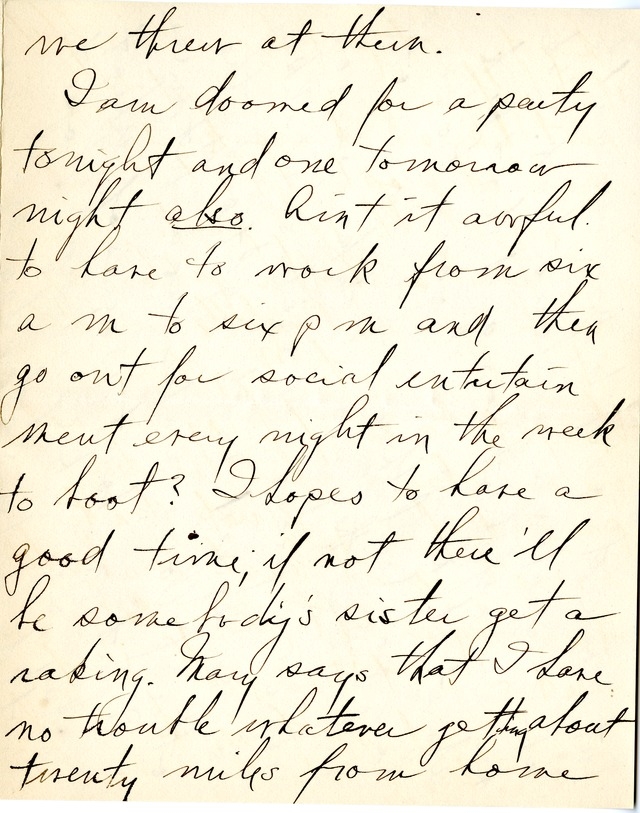 we threw at them.
I am doomed for a party
tonight and one tomorrow
night also. Aint it awful.
to have to work from six
a m to six p m and then
go out for social entertain
ment every night in the week
to boot? I hopes to have a
good time; if not there'll
be somebody's sister get a
raking. Mary says that I have
no trouble whatever getting about
twenty miles from home